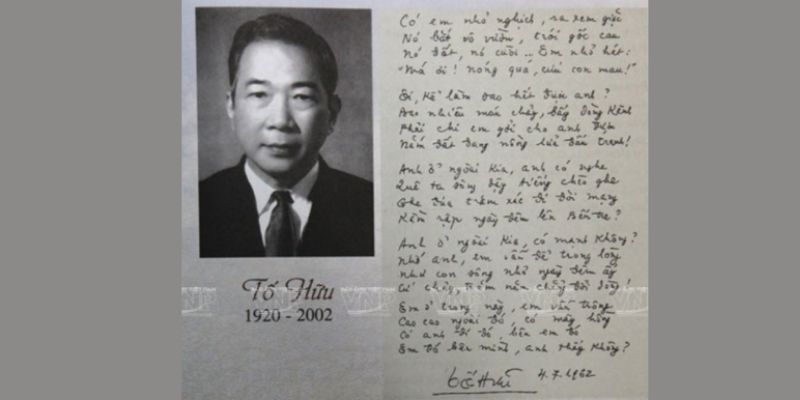 Có em nhỏ nghịch, ra xem giặc
Nó bắt vô vườn, trói gốc cau
Nó đốt, nó cười... Em nhỏ hét:
"Má ơi! nóng quá, cứu con mau!"
Ôi, kể làm sao hết được anh?
Bao nhiêu máu chảy, đầy dòng kênh
Phải chi em gởi cho anh được
Nắm đất đang nồng lửa đấu tranh!
Anh ở ngoài kia, anh có nghe
Quê ta sông dậy tiếng chèo ghe
Ghe đưa trăm xác đi đòi mạng
Rầm rập ngày đêm lên Bến Tre?
Anh ở ngoài kia, có mạnh không?
Nhớ anh, em vẫn để trong lòng
Như con sông nhỏ ngày đêm ấy
Cứ chảy, trăm năm chẳng đổi dòng!
Em ở trong này, em vẫn trông
Cao cao ngoài đó, có mây hồng
Có anh đi đó, bên em đó
Em đó bên mình, anh thấy không?
Tố Hữu 4.7.1962
Tố Hữu
1920 - 2002
VNP